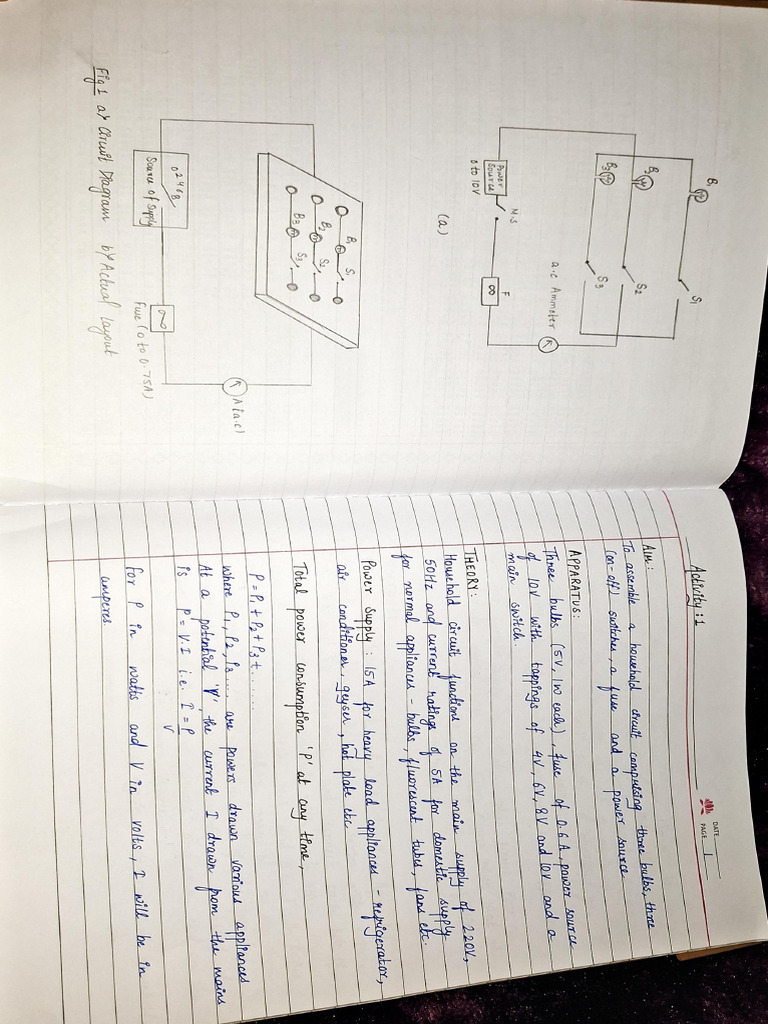 B1
B2
B3
S1
S2
S3
Power
Source
0 to 10V
M.S
F
a.c Ammeter
(a)
B1
S1
B2
S2
B3
S3
0 2 4 6 8
Source of Supply
Fuse (0 to 0.75A)
A (a.c)
Fig 1 a) Circuit Diagram b) Actual Layout
DATE
PAGE 1
Activity: 1
AIM:
To assemble a household circuit comprising three bulbs, three
(on-off) switches, a fuse and a power source.
APPARATUS:
Three bulbs (5V, 1W each), fuse of 0.6A, power source
of 10V with tappings of 4V, 6V, 8V and 10V and a
main switch.
THEORY:
Household circuit functions on the main supply of 220V,
50Hz and current ratings of 5A for domestic supply
for normal appliances - bulbs, fluorescent tubes, fans etc.
Power Supply: 15A for heavy load appliances - refrigerator,
air conditioner, geyser, hot plate etc.
Total power consumption 'P' at any time,
P = P1 + P2 + P3 + ......
where P1, P2, P3 .... are powers drawn various appliances
At a potential 'V', the current I drawn from the mains
is P = V.I i.e. I = P
V
for P in watts and V in volts, I will be in
amperes.